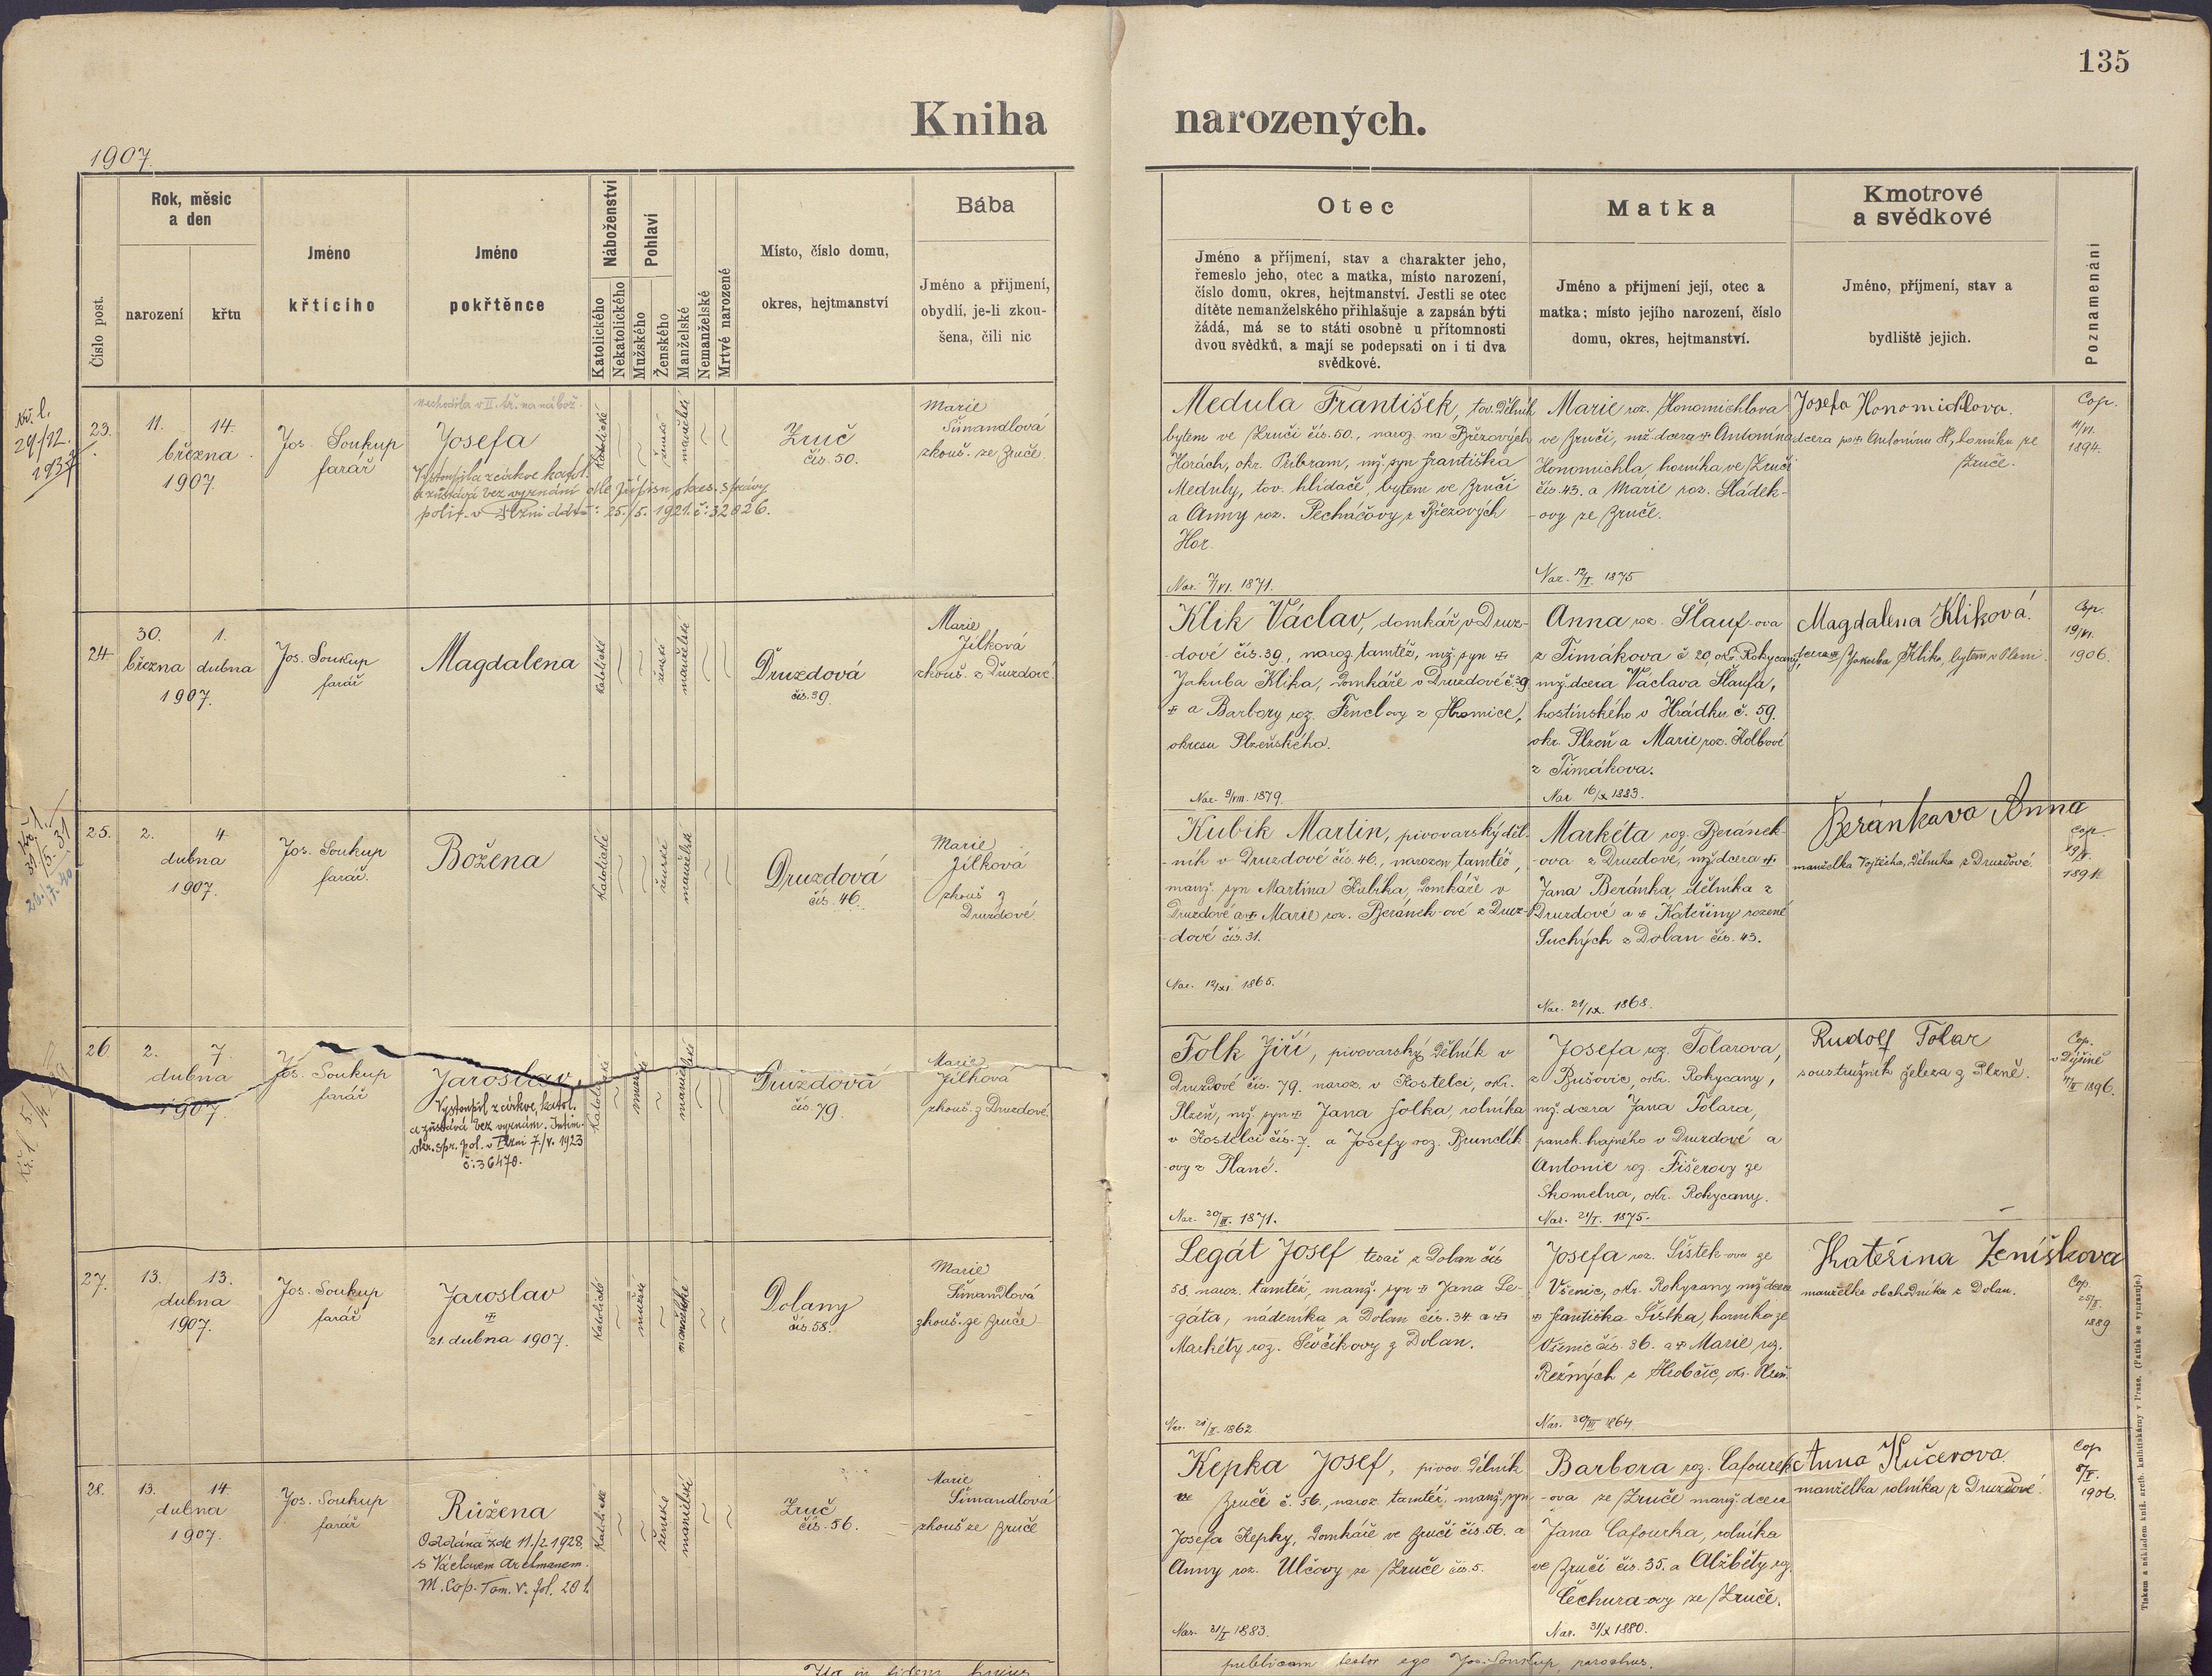 135
Kniha narozených.
1907.
Číslo post.
Rok, měsíc
a den
narození
křtu
Jméno
křticího
Jméno
pokřtěnce
Náboženství
Katolického
Nekatolického
Pohlaví
Mužského
Ženského
Manželské
Nemanželské
Mrtvě narozené
Místo, číslo domu,
okres, hejtmanství
Bába
Jméno a přijmení,
obydlí, je-li zkou-
šena, čili nic
Otec
Jméno a příjmení, stav a charakter jeho,
řemeslo jeho, otec a matka, místo narození,
číslo domu, okres, hejtmanství. Jestli se otec
dítěte nemanželského přihlašuje a zapsán býti
žádá, má se to státi osobně u přítomnosti
dvou svědků, a mají se podepsati on i ti dva
svědkové.
Matka
Jméno a přijmení její, otec a
matka; místo jejího narození, číslo
domu, okres, hejtmanství.
Kmotrové
a svědkové
Jméno, příjmení, stav a
bydliště jejich.
Poznamenání
23.
11. 14.
března
1907.
Jos. Soukup
farář
Josefa
Vystoupila z církve katol.
a zůstává bez vyznání dle přípisu okres. správy
polit. v Plzni ddto: 25./5. 1921. č: 32026.
Katolické
ženské
manželské
Zruč
čís. 50.
Marie
Šimandlová
zkouš. ze Zruče.
Medula František, tov. dělník
bytem ve Zruči čís. 50., naroz. na Březových
Horách, okr. Příbram, mž. syn Františka
Meduly, tov. hlídače, bytem ve Zruči
a Anny roz. Pecháčovy z Březových
Hor.
Nar. 7/VI. 1871.
Marie roz. Honomichlova
ve Zruči, mž. dcera Antonína
Honomichla, horníka ve Zruči
čís. 43. a Marie roz. Sládek-
-ovy ze Zruče.
Nar. 12/I. 1875
Josefa Honomichlova.
dcera po Antonínu H., horníku ze
Zruče.
Cop.
11/VI.
1894.
24.
30. 1.
března dubna
1907.
Jos. Soukup
farář
Magdalena
Katolické
ženské
manželské
Druzdová
čís. 39.
Marie
Jílková
zkouš. z Druzdové.
Klik Václav, domkář v Druz-
-dové čís. 39., naroz. tamtéž, mž. syn
Jakuba Klika, domkáře v Druzdové č. 39
a Barbory roz. Fenclovy z Hromice,
okresu Plzeňského.
Nar. 9/VIII. 1879.
Anna roz. Šlauf-ova
z Timákova č. 20, okr. Rokycany,
mž. dcera Václava Šlaufa,
hostinského v Hrádku č. 59.
okr. Plzeň a Marie roz. Kolbové
z Timákova.
Nar. 16/X 1883.
Magdalena Kliková.
dcera Jakuba Klika, bytem v Plzni.
Cop.
19/VI.
1906.
25.
2. 4.
dubna
1907.
Jos. Soukup
farář.
Božena
Katolické
ženské
manželské
Druzdová
čís. 46.
Marie
Jílková
zkouš. z
Druzdové.
Kubík Martin, pivovarský děl-
-ník v Druzdové čís. 46., narozen tamtéž,
manž. syn Martina Kubíka, domkáře v
Druzdové a Marie roz. Beránek-ové z Druz-
-dové čís. 31.
Nar. 12/XI. 1865.
Markéta roz. Beránek-
-ova z Druzdové, mž. dcera
Jana Beránka, dělníka z
Druzdové a Kateřiny rozené
Suchých z Dolan čís. 43.
Nar. 21/IX. 1868.
Beránkava Anna
manželka Vojtěcha, dělníka z Druzdové.
Cop.
26.
2. 7.
dubna
1907.
Jos. Soukup
farář
Jaroslav
Vystoupil z církve katol.
a zůstává bez vyznám. Intim.
okr. spr. pol. v Plzni 7./V. 1923
č: 36470.
Katolické
mužské
manželské
Druzdová
čís. 79.
Marie
Jílková
zkouš. z Druzdové.
Folk Jiří, pivovarský dělník v
Druzdové čís. 79. naroz. v Kostelci, okr.
Plzeň, mž. syn Jana Folka, rolníka
v Kostelci čís. 7. a Josefy roz. Brunclík-
-ovy z Plané.
Nar. 20/III. 1871.
Josefa roz. Tolarova,
z Bušovic, okr. Rokycany,
mž. dcera Jana Tolara,
pansk. hajného v Druzdové a
Antonie roz. Fišerovy ze
Skomelna, okr. Rokycany.
Nar. 21/I. 1875.
Rudolf Tolar
soustružník železa z Plzně.
Cop.
v Dýšině
1896.
27.
13. 13.
dubna
1907.
Jos. Soukup
farář
Jaroslav
21. dubna 1907.
Katolické
mužské
manželské
Dolany
čís. 58.
Marie
Šimandlová
zkouš. ze Zruče
Legát Josef tesař z Dolan čís
58. naroz. tamtéž, manž. syn Jana Le-
-gáta, nádeníka z Dolan čís. 34. a
Markéty roz. Ševčíkovy z Dolan.
Josefa roz. Šístek-ova ze
Vřenic, okr. Rokycany mž. dcera
Františka Šístka, horníka ze
čís. 36. a Marie roz.
Řezných
Nar. 1864.
Kateřina Zeníškova
manželka obchodníka z Dolan.
Cop.
1889
28.
13. 14.
dubna
1907.
Jos. Soukup
farář
Růžena
Oddána zde 11./2. 1928
s Václavem
M. Cop. Tom. V. fol. 201.
Katolické
ženské
manželské
Zruč
čís. 56.
Marie
Šimandlová
zkouš. ze Zruče
Kepka Josef, pivov. dělník
ve Zruči č. 56., naroz. tamtéž, manž. syn
Josefa Kepky, domkáře ve Zruči čís. 56. a
Anny roz. Ulčovy ze Zruče čís. 5.
Nar. 21/I 1883.
Barbora roz. Cafourek-
-ova ze Zruče manž. dcera
Jana Cafourka, rolníka
ve Zruči čís. 35. a Alžběty roz.
Čechura-ovy ze Zruče.
Nar. 31/X 1880.
Anna Kučerova
manželka rolníka z Druzdové.
Cop
1906.
publicam testor ego Jos. Soukup, parochus.